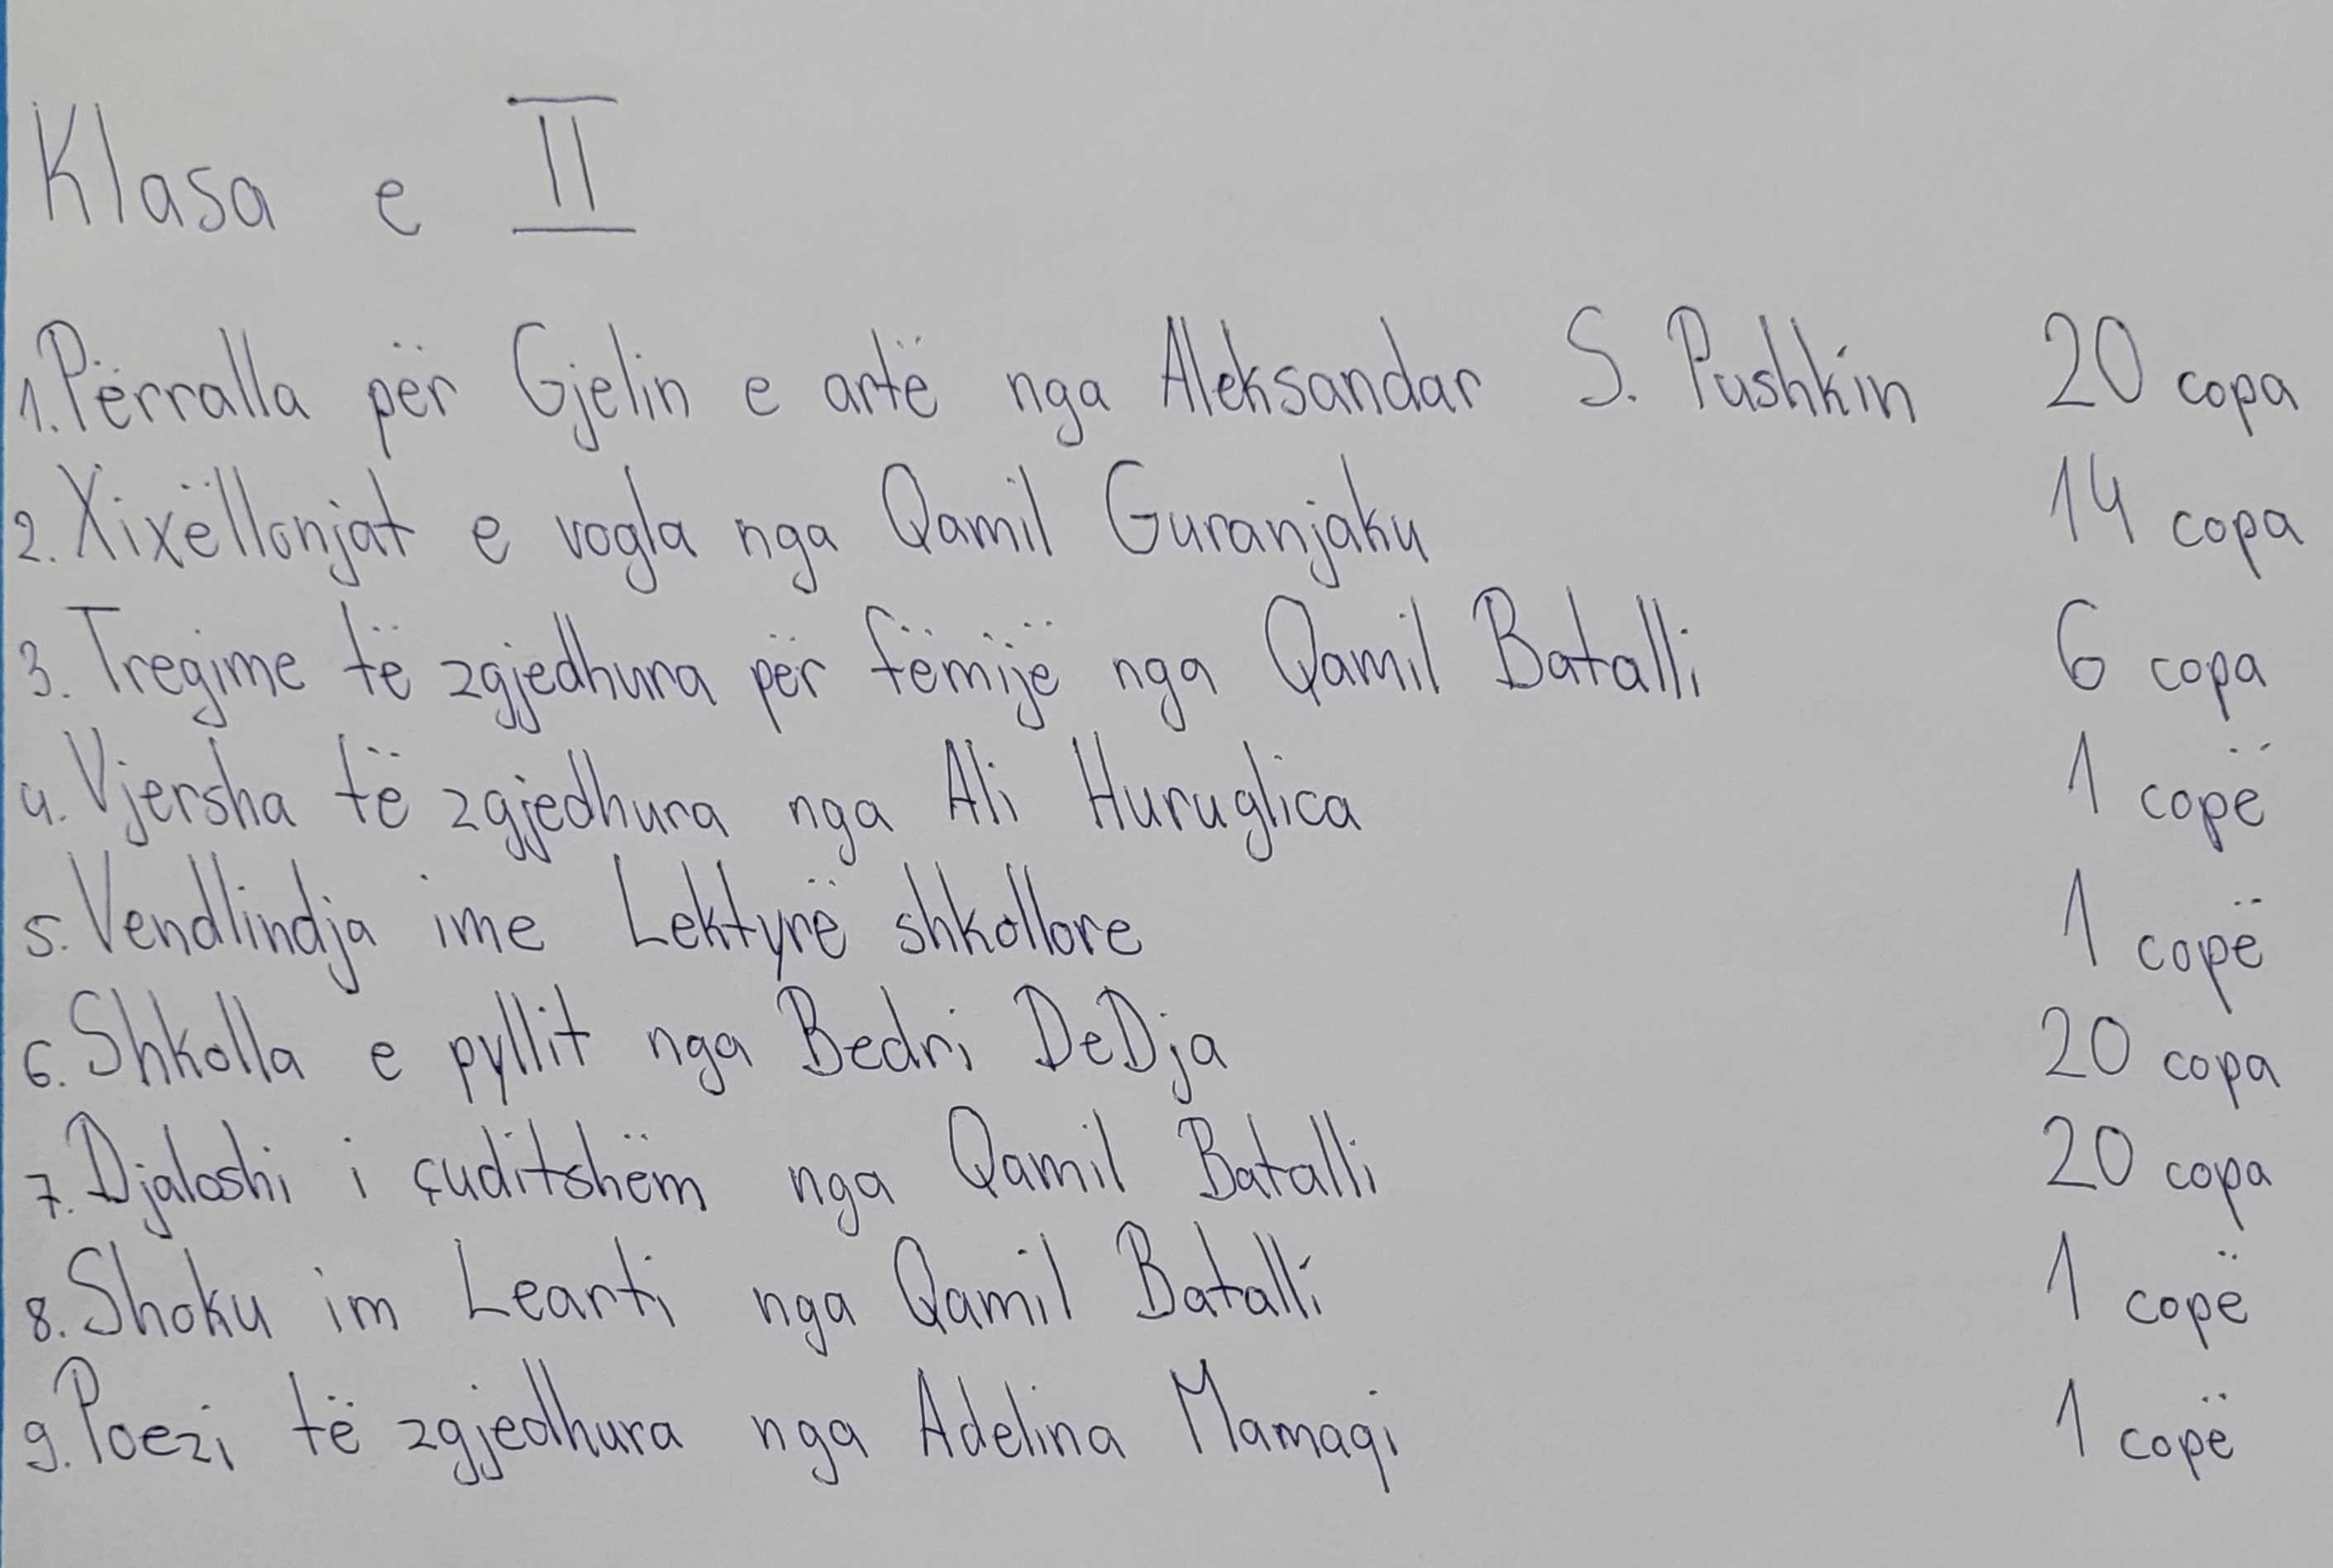 Klasa e II
1. Përralla për Gjelin e artë nga Aleksandar S. Pushkin 20 copa
2. Xixëllonjat e vogla nga Qamil Guranjaku 14 copa
3. Tregime të zgjedhura për fëmijë nga Qamil Batalli 6 copa
4. Vjersha të zgjedhura nga Ali Huruglica 1 copë
5. Vendlindja ime Lektyrë shkollore 1 copë
6. Shkolla e pyllit nga Bedri DeDja 20 copa
7. Djaloshi i çuditshëm nga Qamil Batalli 20 copa
8. Shoku im Learti nga Qamil Batalli 1 copë
9. Poezi të zgjedhura nga Adelina Mamaqi 1 copë